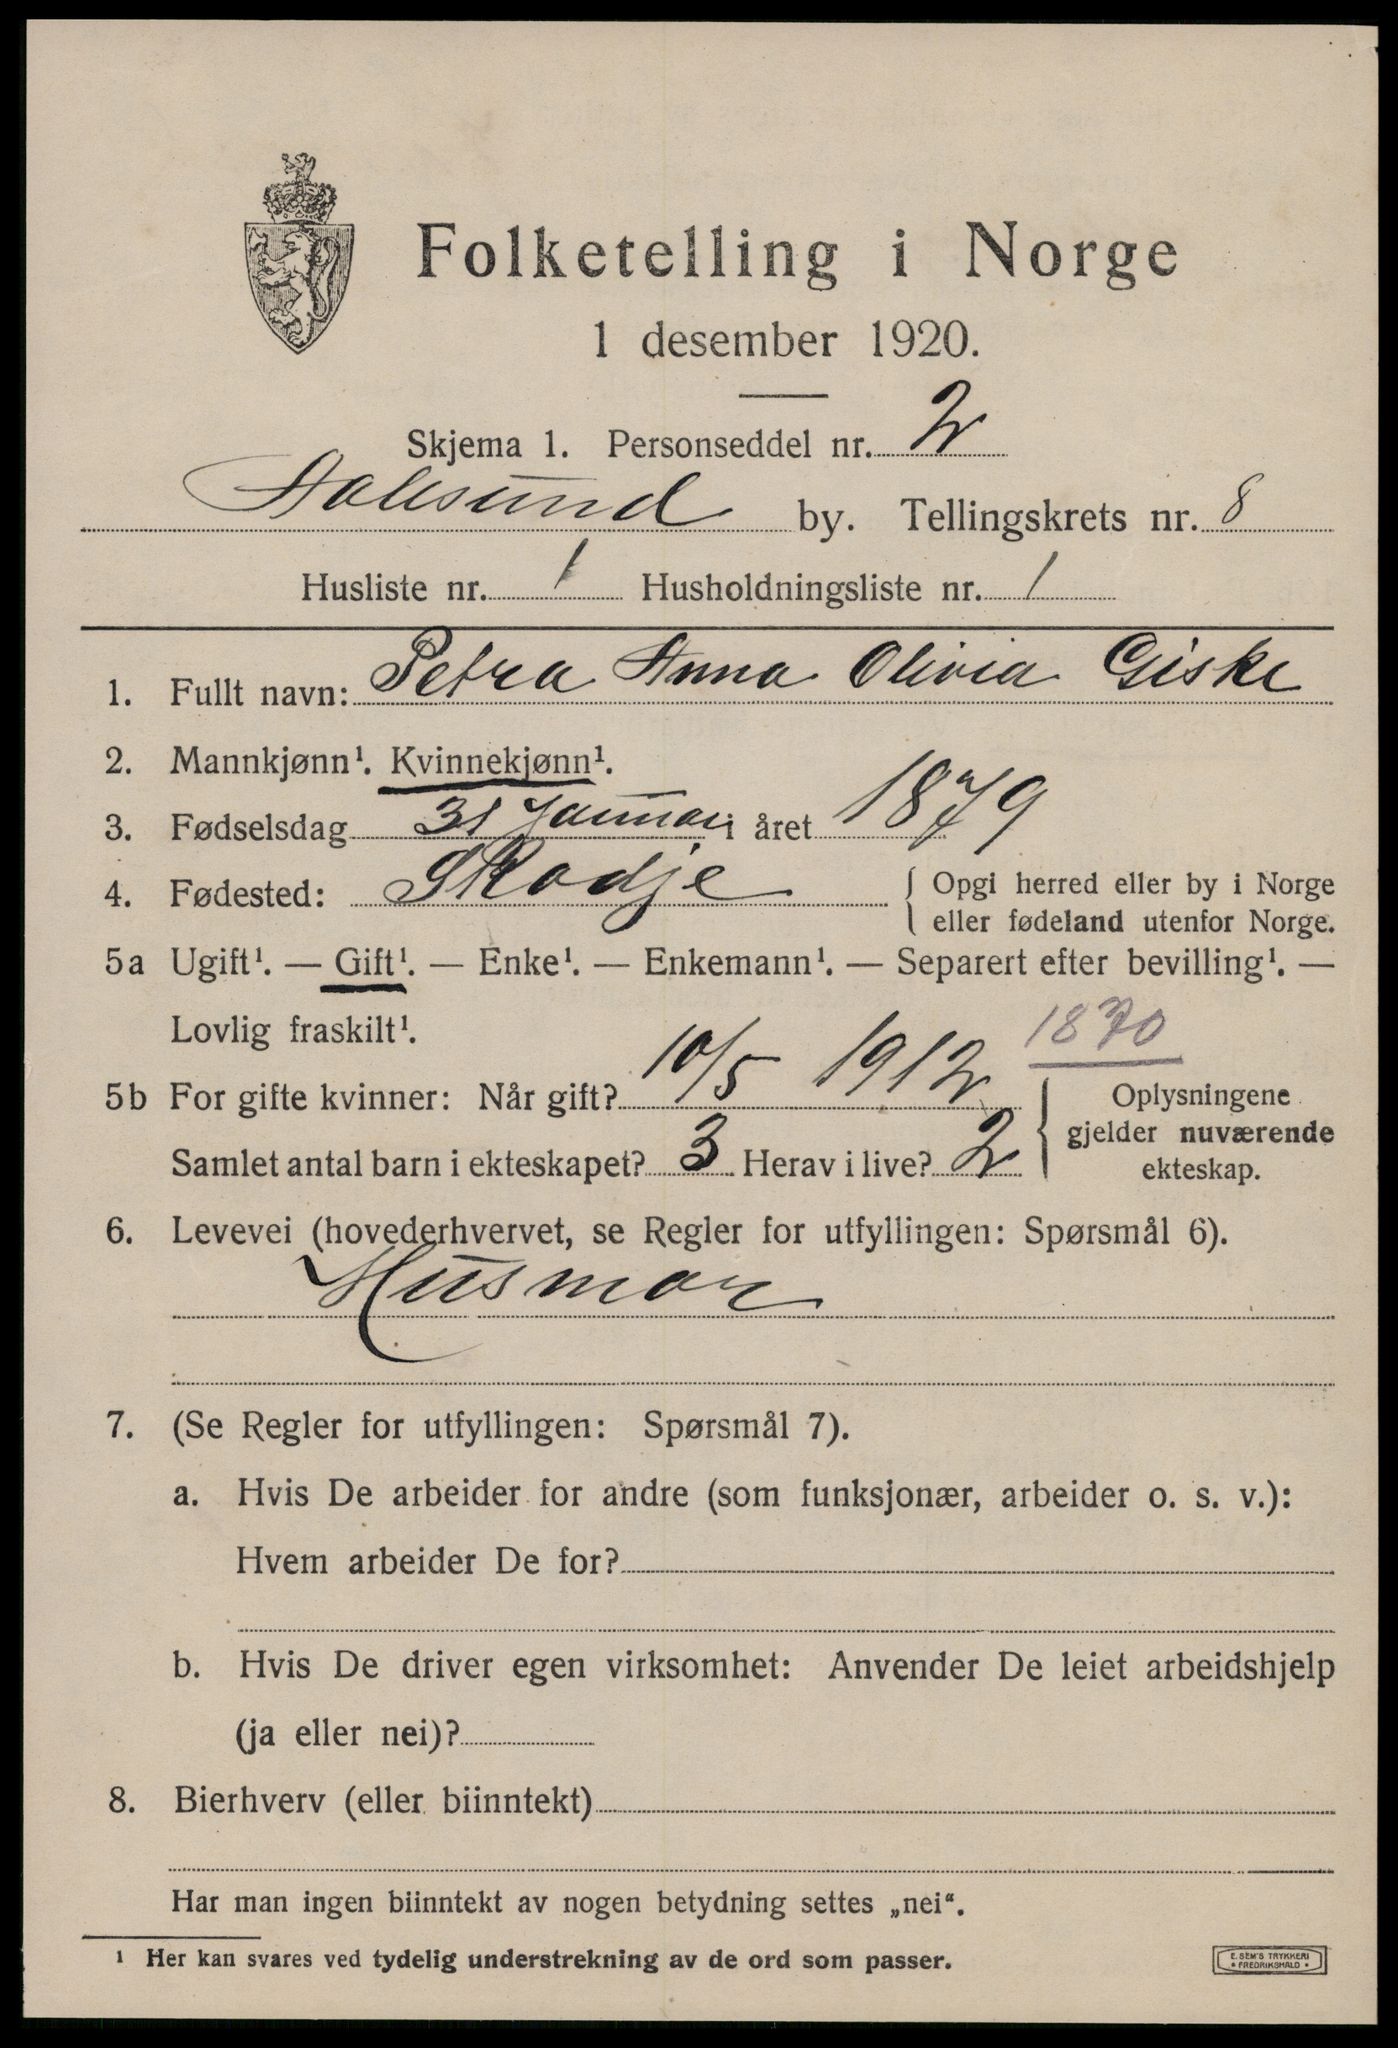 Folketelling i Norge
1 desember 1920.
Skjema 1. Personseddel nr. 2
Aalesund by. Tellingskrets nr. 8
Husliste nr. 1 Husholdningsliste nr. 1
1. Fullt navn: Petra Anna Olivia Giske
2. Mannkjønn¹. Kvinnekjønn¹.
3. Fødselsdag 31 Januar i året 1879
4. Fødested: Skodje { Opgi herred eller by i Norge
eller fødeland utenfor Norge.
5a Ugift¹. — Gift¹. — Enke¹. — Enkemann¹. — Separert efter bevilling¹. —
Lovlig fraskilt¹.
1870
5b For gifte kvinner: Når gift? 10/5 1912
Samlet antal barn i ekteskapet? 3 Herav i live? 2
{ Oplysningene
gjelder nuværende
ekteskap.
6. Levevei (hovederhvervet, se Regler for utfyllingen: Spørsmål 6).
Husmor
7. (Se Regler for utfyllingen: Spørsmål 7).
a. Hvis De arbeider for andre (som funksjonær, arbeider o. s. v.):
Hvem arbeider De for?
b. Hvis De driver egen virksomhet: Anvender De leiet arbeidshjelp
(ja eller nei)?
8. Bierhverv (eller biinntekt)
Har man ingen biinntekt av nogen betydning settes „nei“.
¹ Her kan svares ved tydelig understrekning av de ord som passer.
E. SEM'S TRYKKERI
* FREDRIKSHALD *